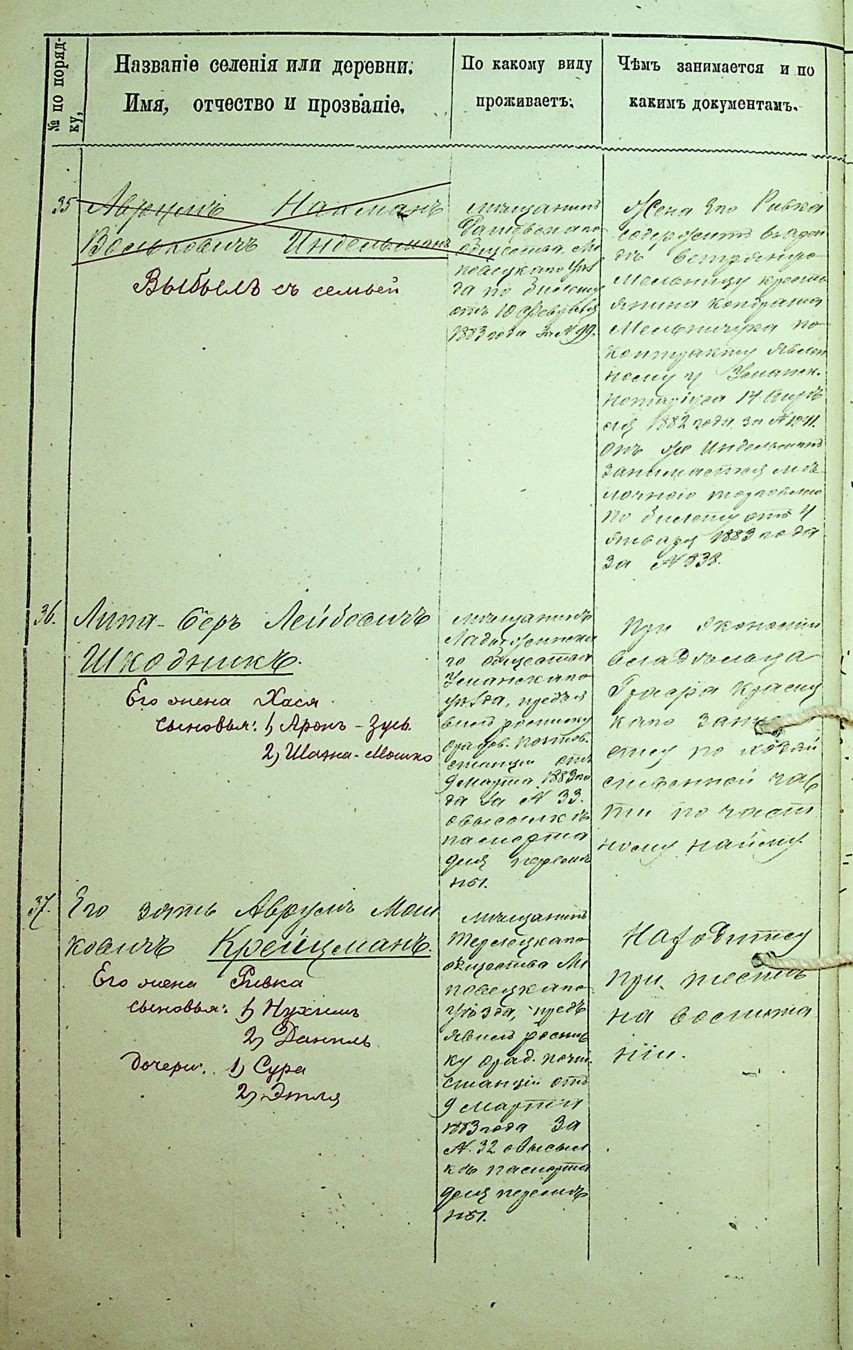 № по поряд-
ку,
Названіе селенія или деревни.
Имя, отчество и прозваніе.
По какому виду
проживаетъ.
Чѣмъ занимается и по
какимъ документамъ.
35
Аврумъ Нахманъ
Воськовичъ Индельманъ
Выбылъ съ семьей
мѣщанинъ
общества,
по билету
отъ 10 Февраля
1883 года за № 99.
Жена Его Ривка
содержитъ въ арен
дѣ вѣтряную
мельницу кресть
янина Кондрата
Мельничука по
контракту явлен
ному у Уманск.
нотаріуса 14 Апрѣ
ля 1882 года за №
онъ же Индельманъ
занимается ме
лочною торговлею
по билету отъ 4
Января 1883 года
за № 838.
36.
Липа-Беръ Лейбовичъ
Шкодникъ.
Его жена Хася
сыновья: 1) Аронъ-Зусь
2) Шазна-Мошко
мѣщанинъ
Ладыженска
го общества
Уманскаго
уѣзда, предъя
вилъ росписку
почтов.
станціи отъ
9 Марта 1883 го
да за № 33.
о высылкѣ
паспорта
для перемѣ
ны.
При экономіи
владѣльца
Красиц
каго
по хозяй
ственной час
ти по част
ному найму.
37.
Его зять Аврумъ Мош
ковичъ Крейцманъ.
Его жена Ривка
сыновья: 1) Нухимъ
2) Даниль
дочери: 1) Сура
2) Этля
мѣщанинъ
общества Ли
повецкаго
уѣзда, предъ
явилъ роспис
ку почт.
станціи отъ
9 Марта
1883 года за
№ 32 о высыл
кѣ паспорта
для перемѣ
ны.
Находится
при тестѣ
на воспита
ніи.